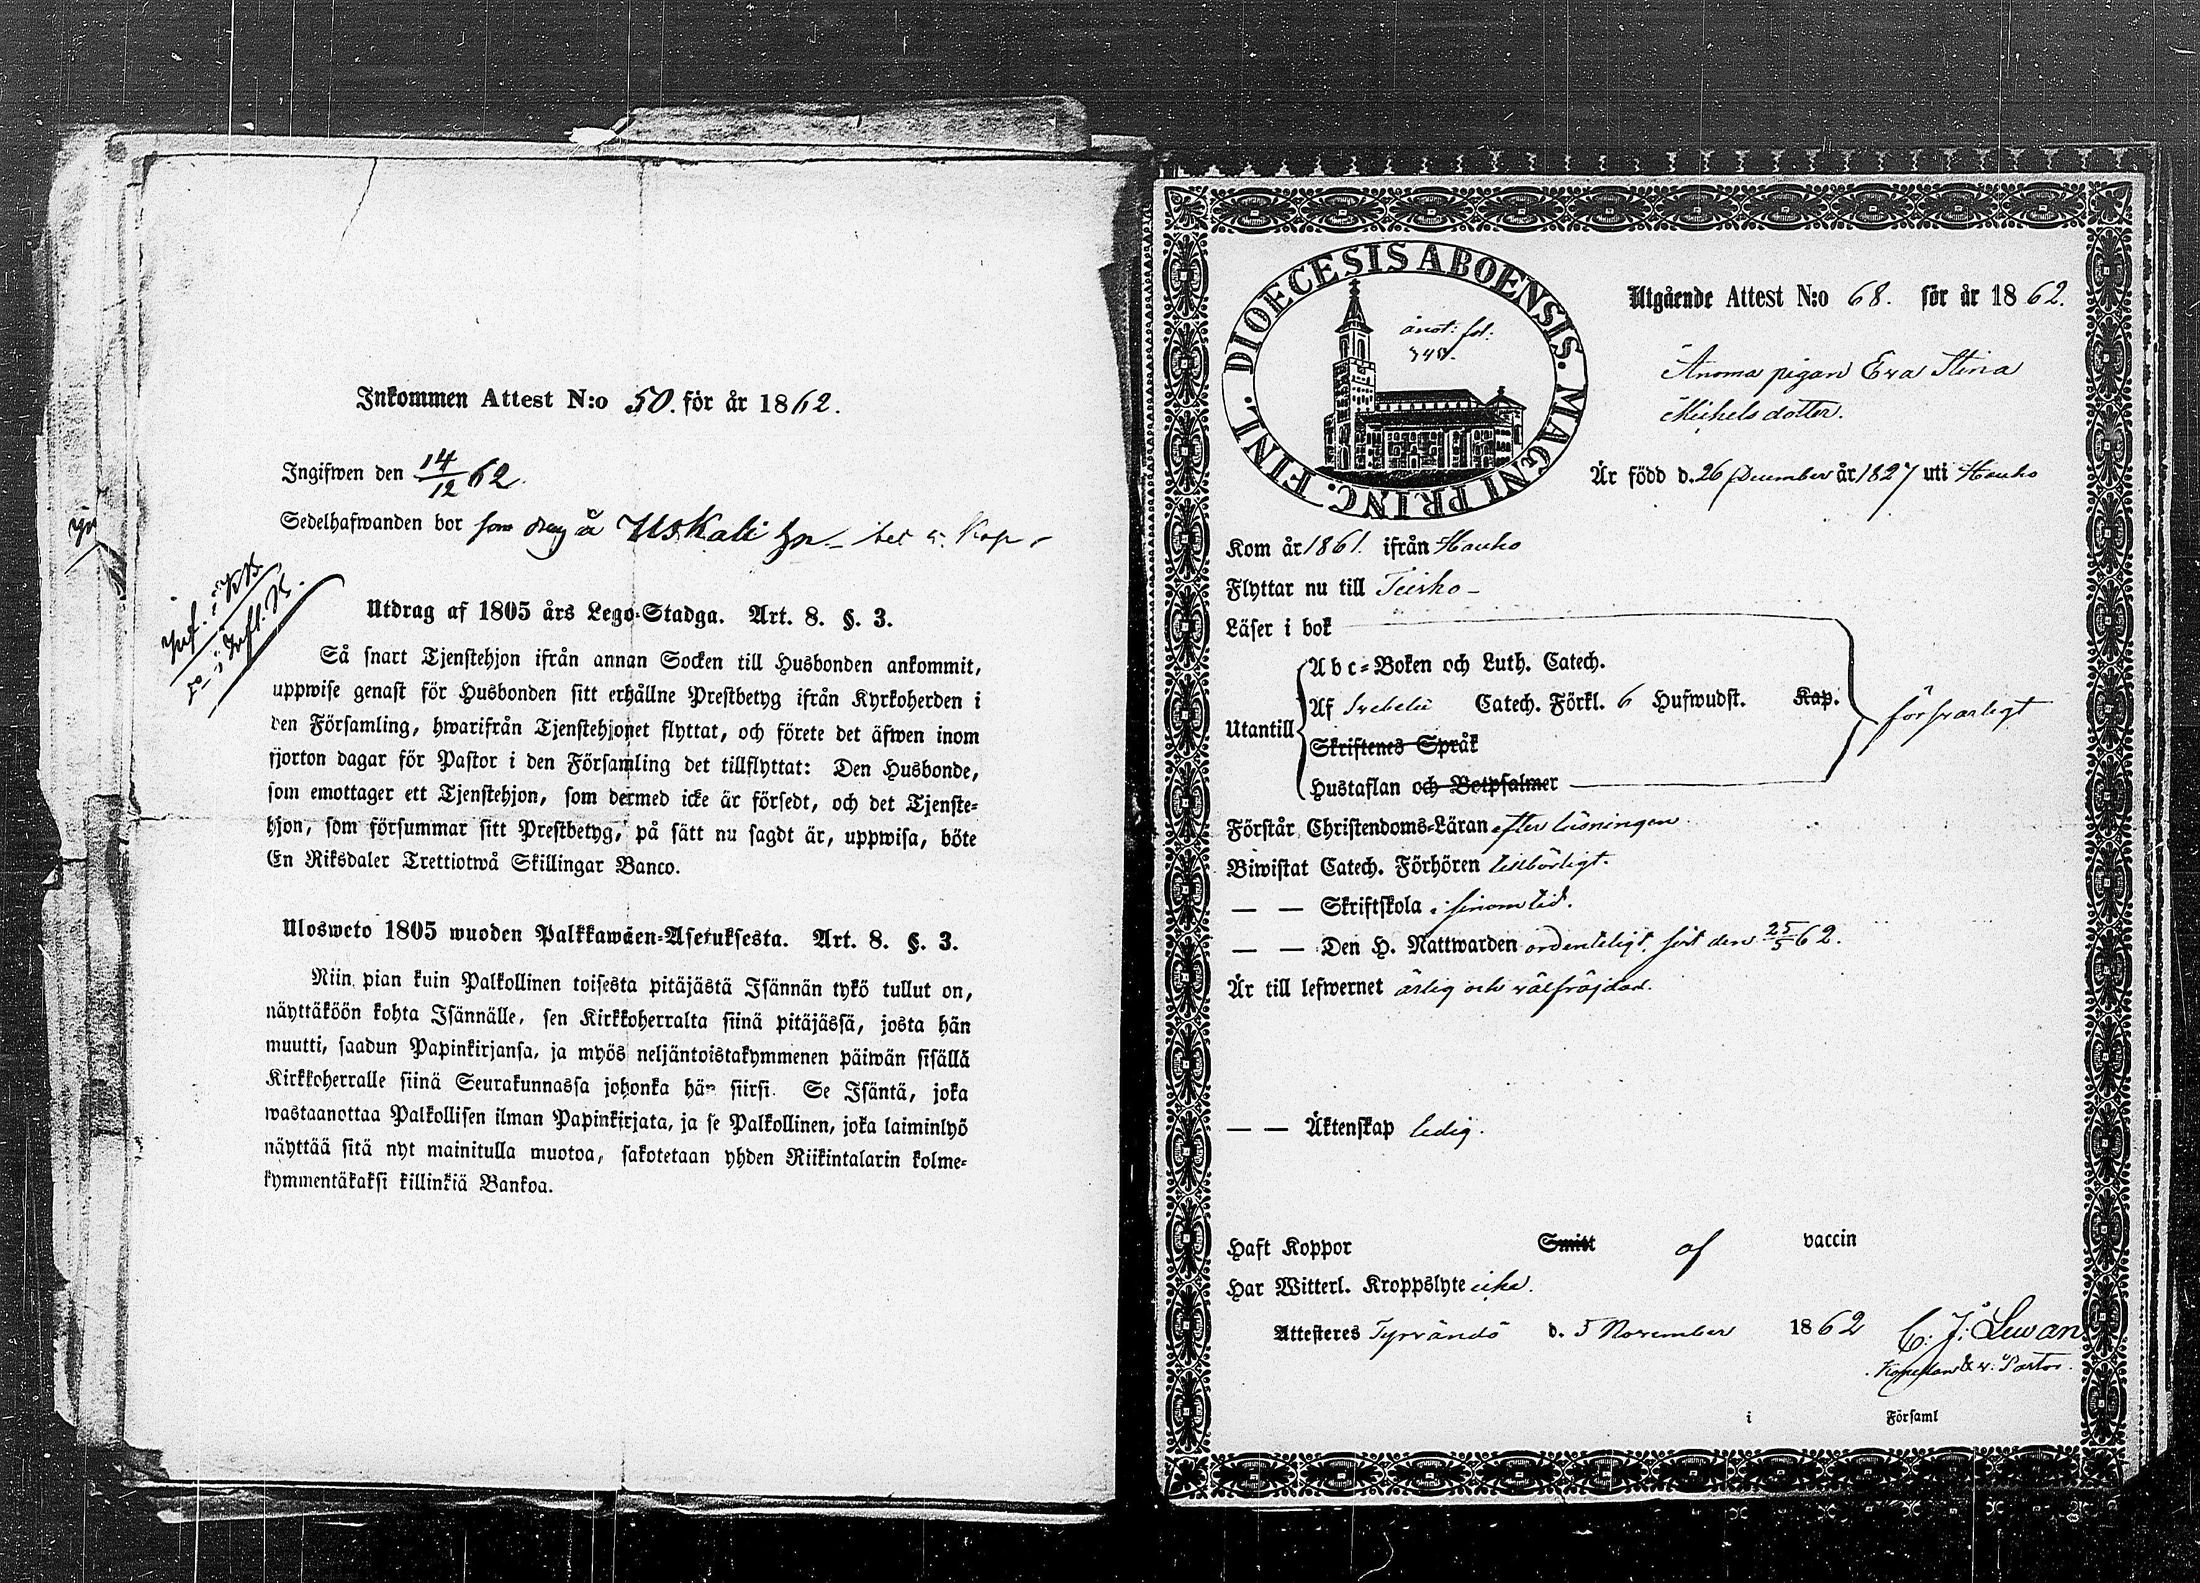 Inkommen Attest N:o 50. för år 1862.
Ingifwen den 14/12 62.
Sedelhafwanden bor som å Uskali
Utdrag af 1805 års Lego-Stadga. Art. 8. §. 3.
Så snart Tjenstehjon ifrån annan Socken till Husbonden ankommit,
uppwise genast för Husbonden sitt erhållne Prestbetyg ifrån Kyrkoherden i
den Församling, hwarifrån Tjenstehjonet flyttat, och förete det äfwen inom
fjorton dagar för Pastor i den Församling det tillflyttat: Den Husbonde,
som emottager ett Tjenstehjon, som dermed icke är försedt, och det Tjenste-
hjon, som försummar sitt Prestbetyg, på sätt nu sagdt är, uppwisa, böte
En Riksdaler Trettiotwå Skillingar Banco.
Ulosweto 1805 wuoden Palkkawäen-Asetuksesta. Art. 8. §. 3.
Niin pian kuin Palkollinen toisesta pitäjästä Isännän tykö tullut on,
näyttäköön kohta Isännälle, sen Kirkkoherralta siinä pitäjässä, josta hän
muutti, saadun Papinkirjansa, ja myös neljäntoistakymmenen päiwän sisällä
Kirkkoherralle siinä Seurakunnassa johonka hän siirsi. Se Isäntä, joka
wastaanottaa Palkollisen ilman Papinkirjata, ja se Palkollinen, joka laiminlyö
näyttää sitä nyt mainitulla muotoa, sakotetaan yhden Riikintalarin kolme-
kymmentäkaksi killinkiä Bankoa.
DIOECESIS ABOENSIS. MAGNI PRINC. FINL.
Utgående Attest N:o 68. för år 1862.
pigan Eva Stina
Michelsdotter.
Är född d. 26 December år 1827 uti Hauho
Kom år 1861. ifrån Hauho
Flyttar nu till Teisko
Läser i bok
Abc-Boken och Luth. Catech.
Utantill Af Svebelii Catech. Förkl. 6 Hufwudst. Kap. försvarligt
Skriftenes Språk
Hustaflan och Botpsalmer
Förstår Christendoms-Läran efter läsningen
Biwistat Catech. Förhören tillbörligt.
— — Skriftskola i sinom tid.
— — Den H. Nattwarden ordenteligt, sist den 25/5 62.
Är till lefwernet ärlig och välfräjdad.
— — Äktenskap ledig.
Haft Koppor Smitt af vaccin
Har Witterl. Kroppslyte icke.
Attesteres Tyrvändö d. 5 November 1862 C: J: Lewan
Kapellan & v: Pastor.
i Församl